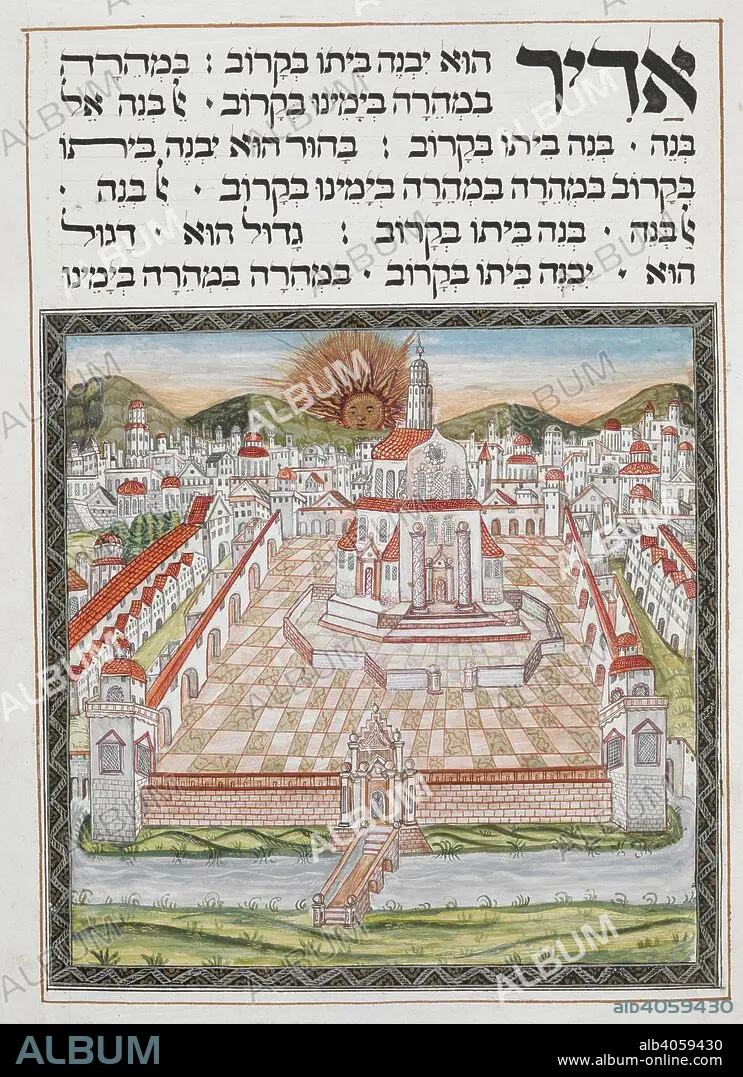 אַדִיר הוּא יִבְנֶה בֵיתוֹ בְּקָרוֹב : בִּמְהֵרָה
בִּמְהֵרָה בְּיָמֵינוּ בְּקָרוֹב · ﭏ בְּנֵה אֵל
בְּנֵה · בְּנֵה בֵיתוֹ בְּקָרוֹב : בָּחוּר הוּא יִבְנֶה בֵיתוֹ
בְּקָרוֹב בִּמְהֵרָה בִּמְהֵרָה בְּיָמֵינוּ בְּקָרוֹב · ﭏ בְּנֵה ·
ﭏ בְּנֵה · בְּנֵה בֵיתוֹ בְּקָרוֹב : גָּדוֹל הוּא · דָּגוּל
הוּא · יִבְנֶה בֵיתוֹ בְּקָרוֹב · בִּמְהֵרָה בִּמְהֵרָה בְּיָמֵינוּ
alb4059430
ALBUM
alb4059430
www.album-online.com